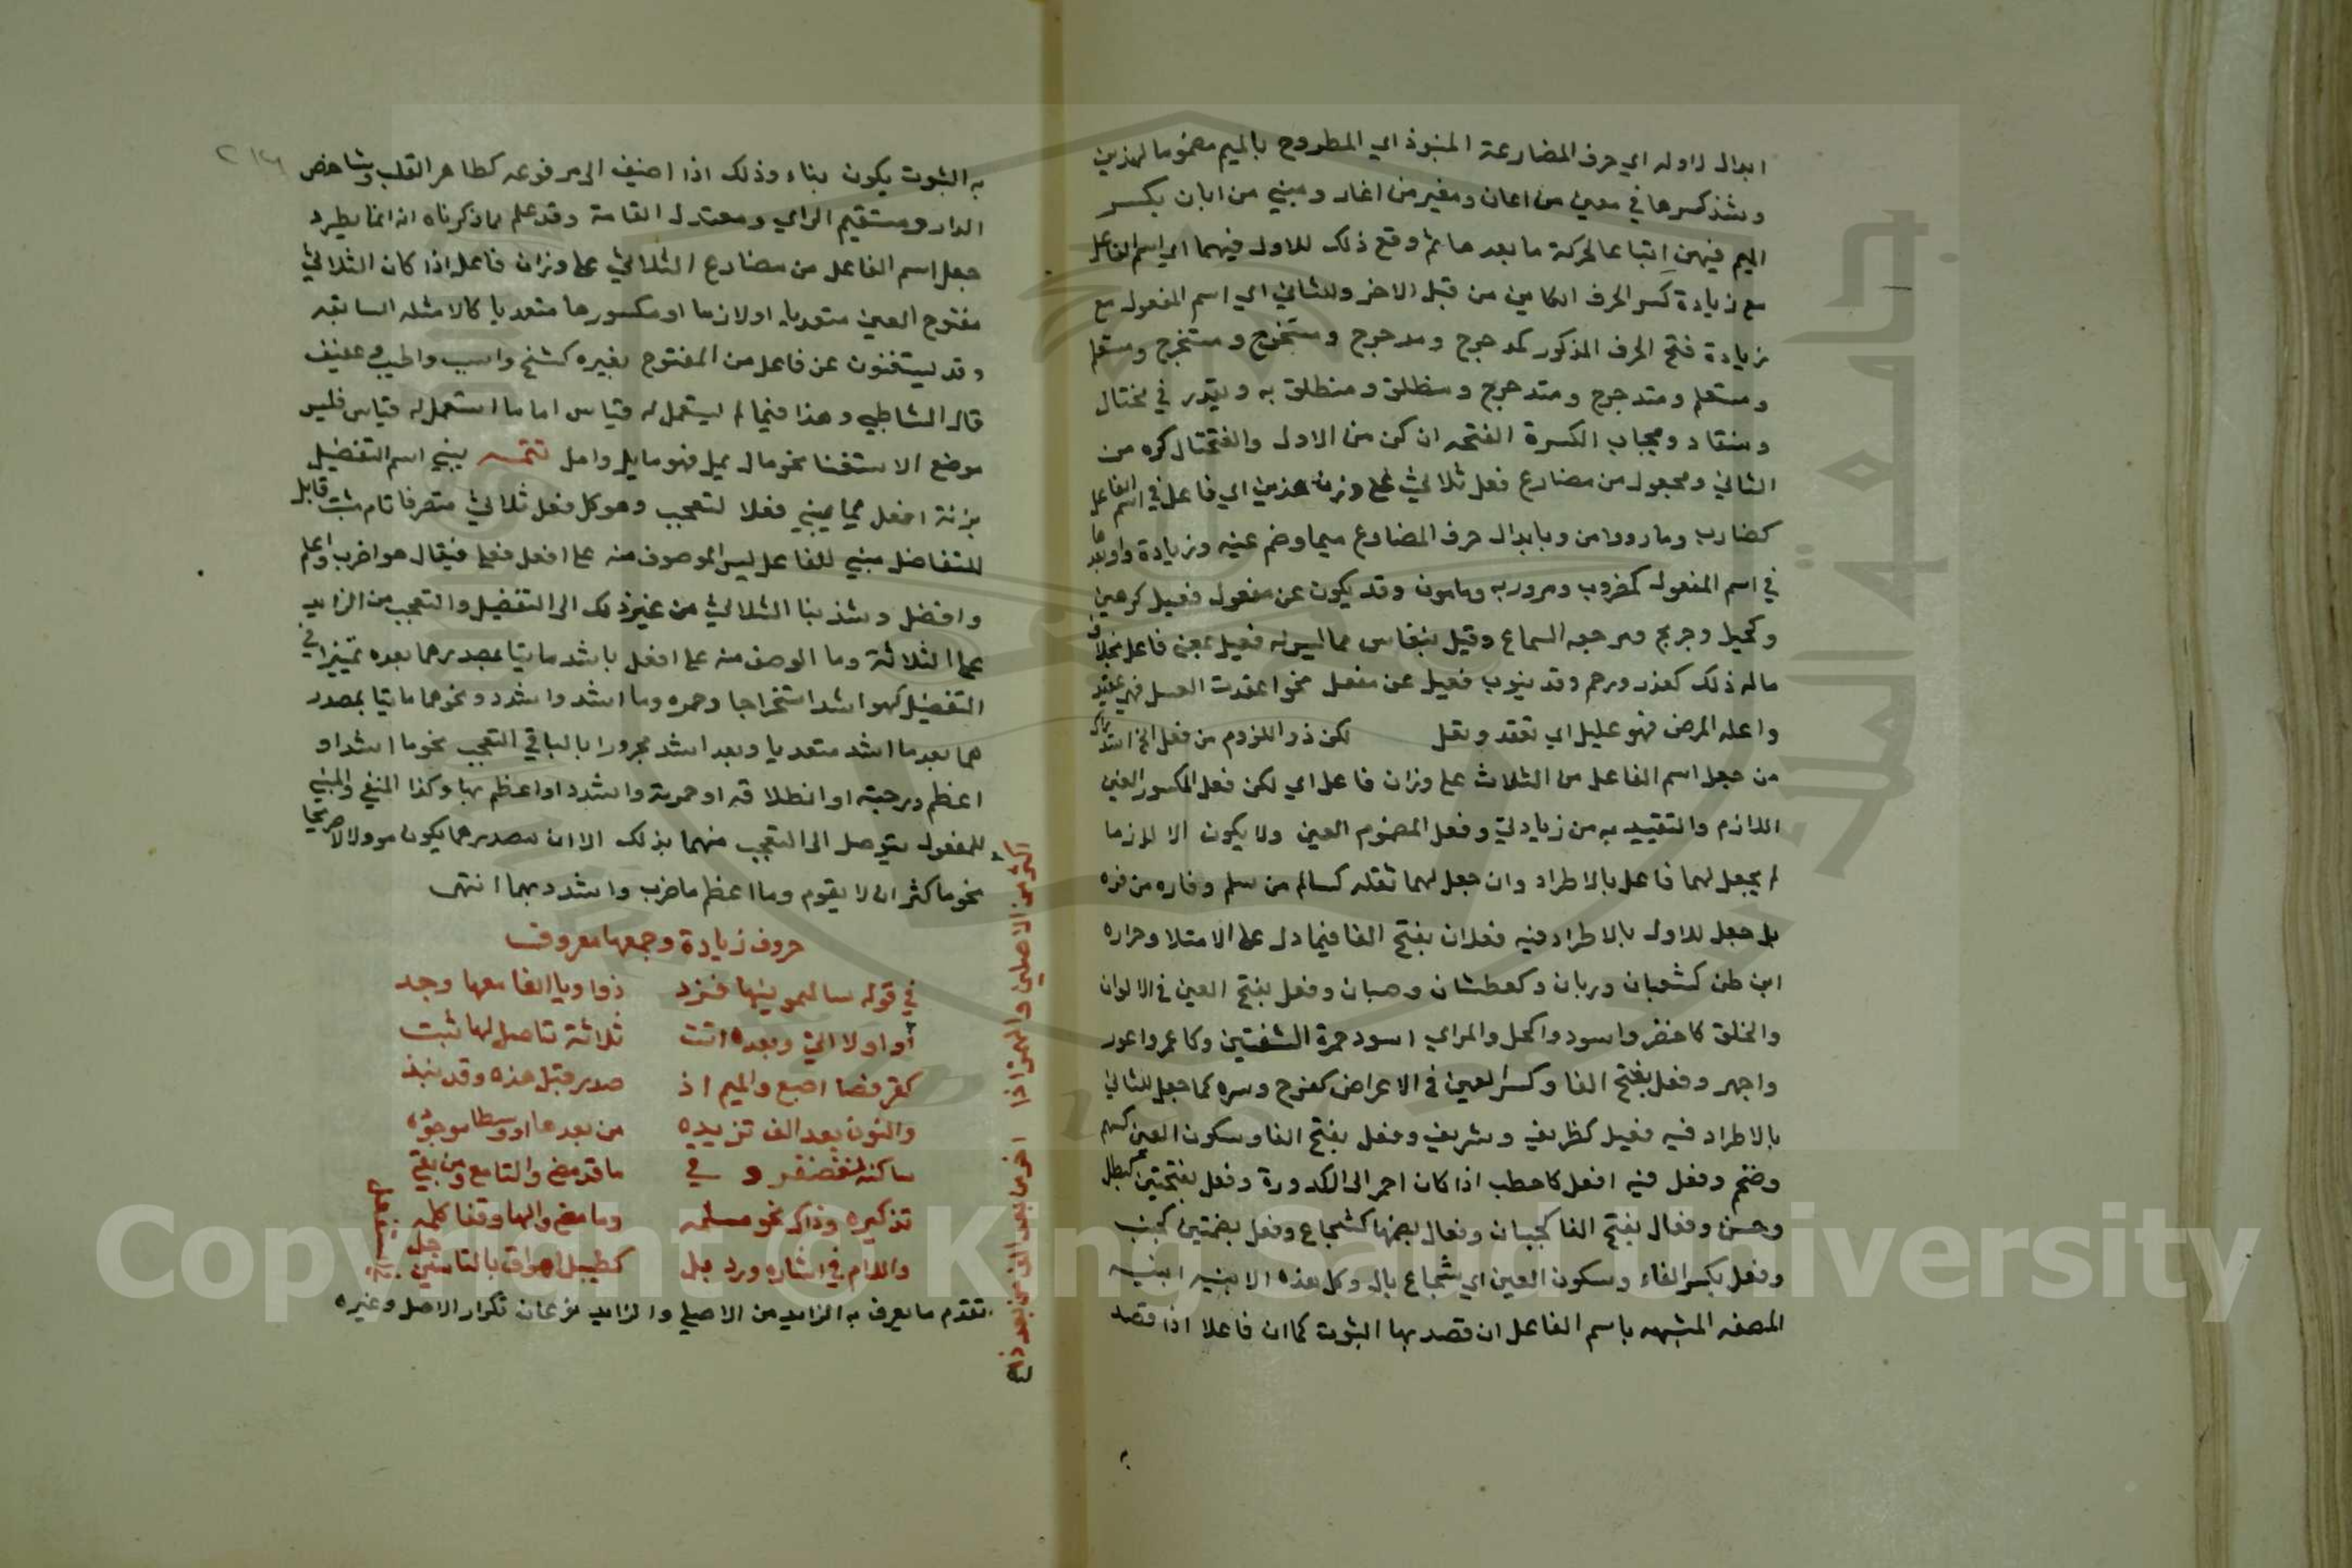 ابدال اوله اي حرف المضارعة المنبوذ اي المطروح بالميم مضموما لهذين
وشذ كسرها في معين من اعان ومغير من اغار ومبني من ابان بكسر
الميم فيهن إتباعا لحركة ما بعدها ثم وقع ذلك للاول فيهما اي اسم الفاعل
مع زيادة كسر الحرف الكاين من قبل الاخر وللثاني اي اسم المفعول مع
زيادة فتح الحرف المذكور كمدحرج ومدحرج ومستخرج ومستخرج ومتعلم
ومتعلم ومتدحرج ومتدحرج ومنطلق ومنطلق به ويقدر في مختال
ومنقاد ومجاب الكسرة الفتحه ان كن من الاول والفتح
الثاني ومجعول من مضارع فعل ثلاثي على وزن هذين اي فاعل في اسم الفاعل
كضارب ومار ووامن وبابدال حرف المضارع ميما وضم عينه وزيادة واو بعدها
في اسم المفعول كمضروب وممرور به ومامون وقد يكون عن مفعول فعيل كرهين
وكحيل وجريح ومرجعه السماع وقيل ينقاس مما ليس له فعيل بمعنى فاعل بخلاف
ماله ذلك كعذر ورحم وقد ينوب فعيل عن مفعل نحو اعقدت العسل فهو عقيد
واعله المرض فهو عليل اي تعقد وتعل لكن ذو اللزوم من فعل الخ
من جعل اسم الفاعل من الثلاث على وزان فاعل اي لكن فعل المكسور العين
اللازم والتقييد به من زيادتي وفعل المضموم العين ولا يكون الا لازما
لم يجعل لهما فاعل بالاطراد وان جعل لهما بقله كسالم من سلم وفاره من فره
بل جعل للاول بالاطراد فيه فعلان بفتح الفا فيما دل على الامتلا وحراره
البطن كشبعان وريان وكعطشان وفعل بفتح العين في الالوان
والخلق كاخضر واسود واكحل والمراي اسود حمرة الشفتين وكاعمر واعور
واجهر وفعل بفتح الفا وكسر العين في الاعراض كفرح وسره كما جعل للثاني
بالاطراد فيه فعيل كظريف وشريف وفعل بفتح الفا وسكون العين كشهم
وضخم وفعل فيه افعل كاحطب اذا كان احمر الى الكدورة وفعل بفتحتين كبطل
وحسن وفعال بفتح الفا كجبان وفعال بضمها كشجاع وفعل بضمتين كجنب
وفعل بكسر الفاء وسكون العين اي شجاع بال وكل هذه الابنيه ابنيه
الصفه المشبهه باسم الفاعل ان قصد بها الثبوت كما ان فاعلا اذا قصد
به الثبوت يكون بناء وذلك اذا اضيف الى مرفوعه كطاهر القلب وشاخص
الدار ومستقيم الراي ومعتدل القامة وقد علم بما ذكرناه انه انما يطرد
جعل اسم الفاعل من مضارع الثلاثي على وزان فاعل اذا كان الثلاثي
مفتوح العين متعديا او لازما او مكسورها متعديا كالامثله السابقه
وقد يستغنون عن فاعل من المفتوح بغيره كشيخ واشيب واطيب وعفيف
قال الشاطبي وهذا فيما لم يستعمل له قياس اما ما استعمل له قياس فليس
موضع الاستغنا نحو مال يميل فهو مايل واميل تتمه يبنى اسم التفضيل
بزنة افعل مما يبنى فعلا لتعجب وهو كل فعل ثلاثي متصرفا تام مثبت قابل
للتفاضل مبني للفاعل ليس الموصوف منه على افعل فعلى فيقال هو اضرب واعلم
وافضل وشذ بنا الثلاثي من غير ذلك الى التفضيل والتعجب من الزايد
على الثلاثة وما الوصف منه على افعل باشد ماتيا بمصدرهما بعده تمييزا في
التفضيل كهو اشد استخراجا وحمره وما اشد واشدد ونحوهما ماتيا بمصدر
هما بعد ما اشد متعديا وبعد اشد مجرورا بالباقي التعجب نحو ما اشد او
اعظم دحرجته او انطلاقه او حمرته واشدد او اعظم بها وكذا المنفي والمبني
للمفعول يتوصل الى التعجب منهما بذلك الا ان مصدرهما يكون موولا لا صريحا
نحو ما كثر ان لا يقوم وما اعظم ما ضرب واشدد بهما انتهى
حروف زيادة وجمعها معروف
في قوله سالتمونيها فزد ذو او ويا الفا معها وجد
او اولا التي وبعده اتت ثلاثة تاصل لها ثبت
كقرفصا اصبع والميم اذ صدر قبل هذه وقد نبذ
والنون بعد الف تزيده من بعدها او وسطا موجوده
ساكنه لغضنفر وفي ما قد مضى والتا مع ومن بقي
تذكيره وذاك نحو مسلمه وما مضى والها وقفا كلمه
واللام في اشاره ورد بل كطيسل هواق بالتا سين جعل
تقدم ما يعرف به الزايد من الاصلي والزايد نوعان تكرار الاصل وغيره
اكثر من الاصلين والهمز اذا اخر من بعد الف من بعد ذا
Copyright © King Saud University